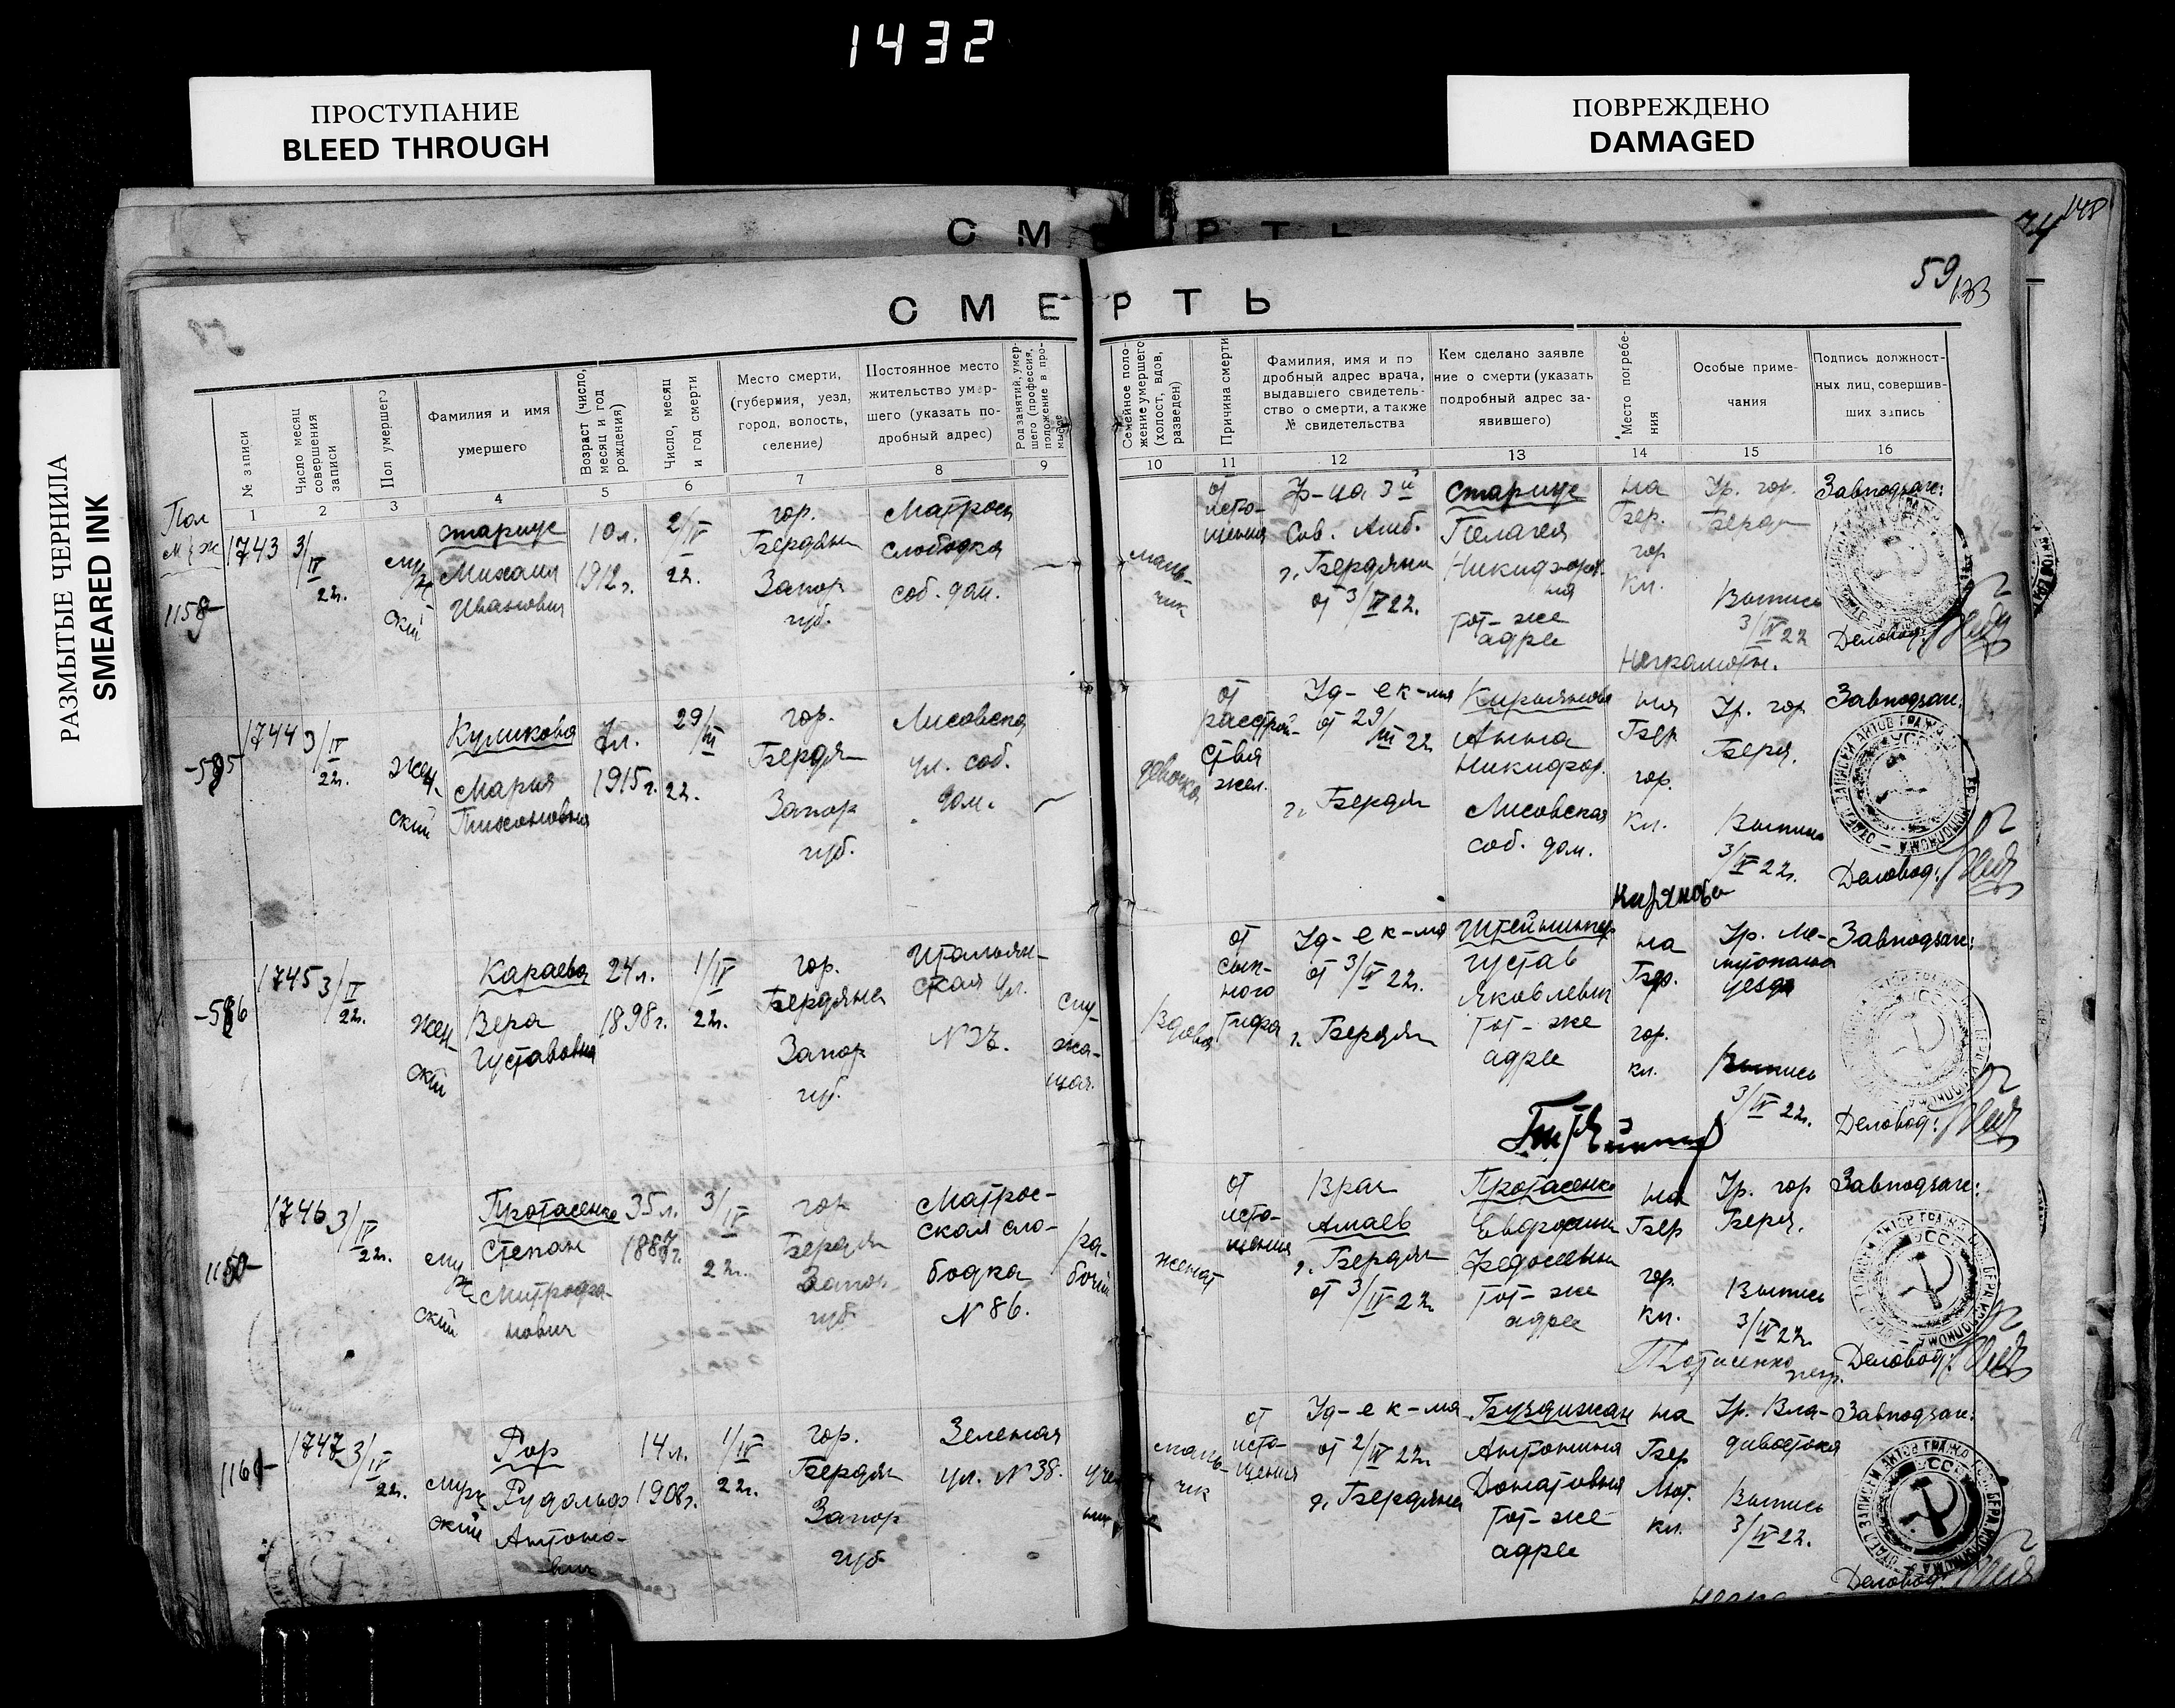 1432
ПРОСТУПАНИЕ
BLEED THROUGH
ПОВРЕЖДЕНО
DAMAGED
РАЗМЫТЫЕ ЧЕРНИЛА
SMEARED INK
СМЕРТЬ
148
74
59
СМЕРТЬ
№ записи
Число месяц
совершения
записи
Пол умершего
Фамилия и имя
умершего
Возраст (число,
месяц и год
рождения)
Число, месяц
и год смерти
Место смерти,
(губерния, уезд,
город, волость,
селение)
Постоянное место
жительство умер-
шего (указать по-
дробный адрес)
Род занятий, умер-
шего (профессия,
положение в про-
мысле
Семейное поло-
жение умершего
(холост, вдов,
разведен)
Причина смерти
Фамилия, имя и по
дробный адрес врача,
выдавшего свидетель-
ство о смерти, а также
№ свидетельства
Кем сделано заявле
ние о смерти (указать
подробный адрес за-
явившего)
Место погребе-
ния
Особые приме-
чания
Подпись должност-
ных лиц, совершив-
ших запись
1 2 3 4 5 6 7 8 9 10 11 12 13 14 15 16
Пол
м ж
1743
3/IV
22г.
муж
ский
Михаил
Иванович
10 л.
1912 г.
2/IV
22.
гор.
Бердян
Запор
губ.
Матрос
слободка
соб. дом.
маль-
чик
от
исто-
щения
Сов. Амб.
г. Бердянск
от 3/IV 22.
Пелагея
тот-же
адрес
на
Бер.
гор
кл.
Гр. гор.
Бердян
Выпись
3/IV 22
Неграмотн.
Завподзаг:
Деловод:
1744
3/IV
22г.
жен
ский
Куликова
Мария
Тихоновна
7 л.
1915 г.
29/III
22.
гор.
Бердян
Запор
губ.
Лисовская
ул. соб.
дом.
девочка
от
расстрой-
ства
жел.
Уд-е к-ма
от 29/III 22
г. Бердян
Кирьянова
Анна
Никифор.
Лисовская
соб. дом.
Бер
гор.
кл.
Гр. гор
Бердя.
Выпись
3/IV 22г.
Завподзаг:
Деловод:
1745
3/IV
22г.
жен-
ский
Караева
Вера
Густавовна
24 л.
1898 г.
1/IV
22г.
гор.
Бердянск
Запор
губ.
Итальян-
ская ул.
слу-
жа-
щая.
вдова
от
сып-
ного
тифа
Уд-е к-ма
от 3/IV 22г.
г. Бердян
Густав
Яковлевич
тот-же
адрес
на
Бер.
гор.
кл.
Гр. Ме-
уезда
Выпись
3/IV 22г.
Завподзаг:
Деловод:
1746
3/IV
22г.
муж
ский
Протасенко
Степан
Митрофа-
нович
35 л.
1887 г.
3/IV
22г.
гор
Бердян
Запор
губ
Матрос-
ская сло-
бодка
№ 86.
ра-
бочий
женат
от
исто-
щения
Врач
Амаев
г. Бердян
от 3/IV 22.
Протасенко
Евфросин
Федосеевна
тот-же
адрес
на
Бер
гор.
кл.
Гр. гор
Бердя.
Выпись
3/IV 22г.
Завподзаг:
Деловод:
1747
3/IV
22г.
муж
ский
Рор
Рудольф
Антоно-
вич
14 л.
1908 г.
1/IV
22г.
гор.
Бердян
Запор
губ
Зеленая
ул. № 38.
уче
ник
маль-
чик
от
исто-
щения
Уд-е к-ма
от 2/IV 22г.
г. Бердянск
Антонина
Донатовна
тот-же
адрес
на
Бер
Лют.
кл.
Гр. Вла-
дивостока
Выпись
3/IV 22г.
Завподзаг:
Деловод: